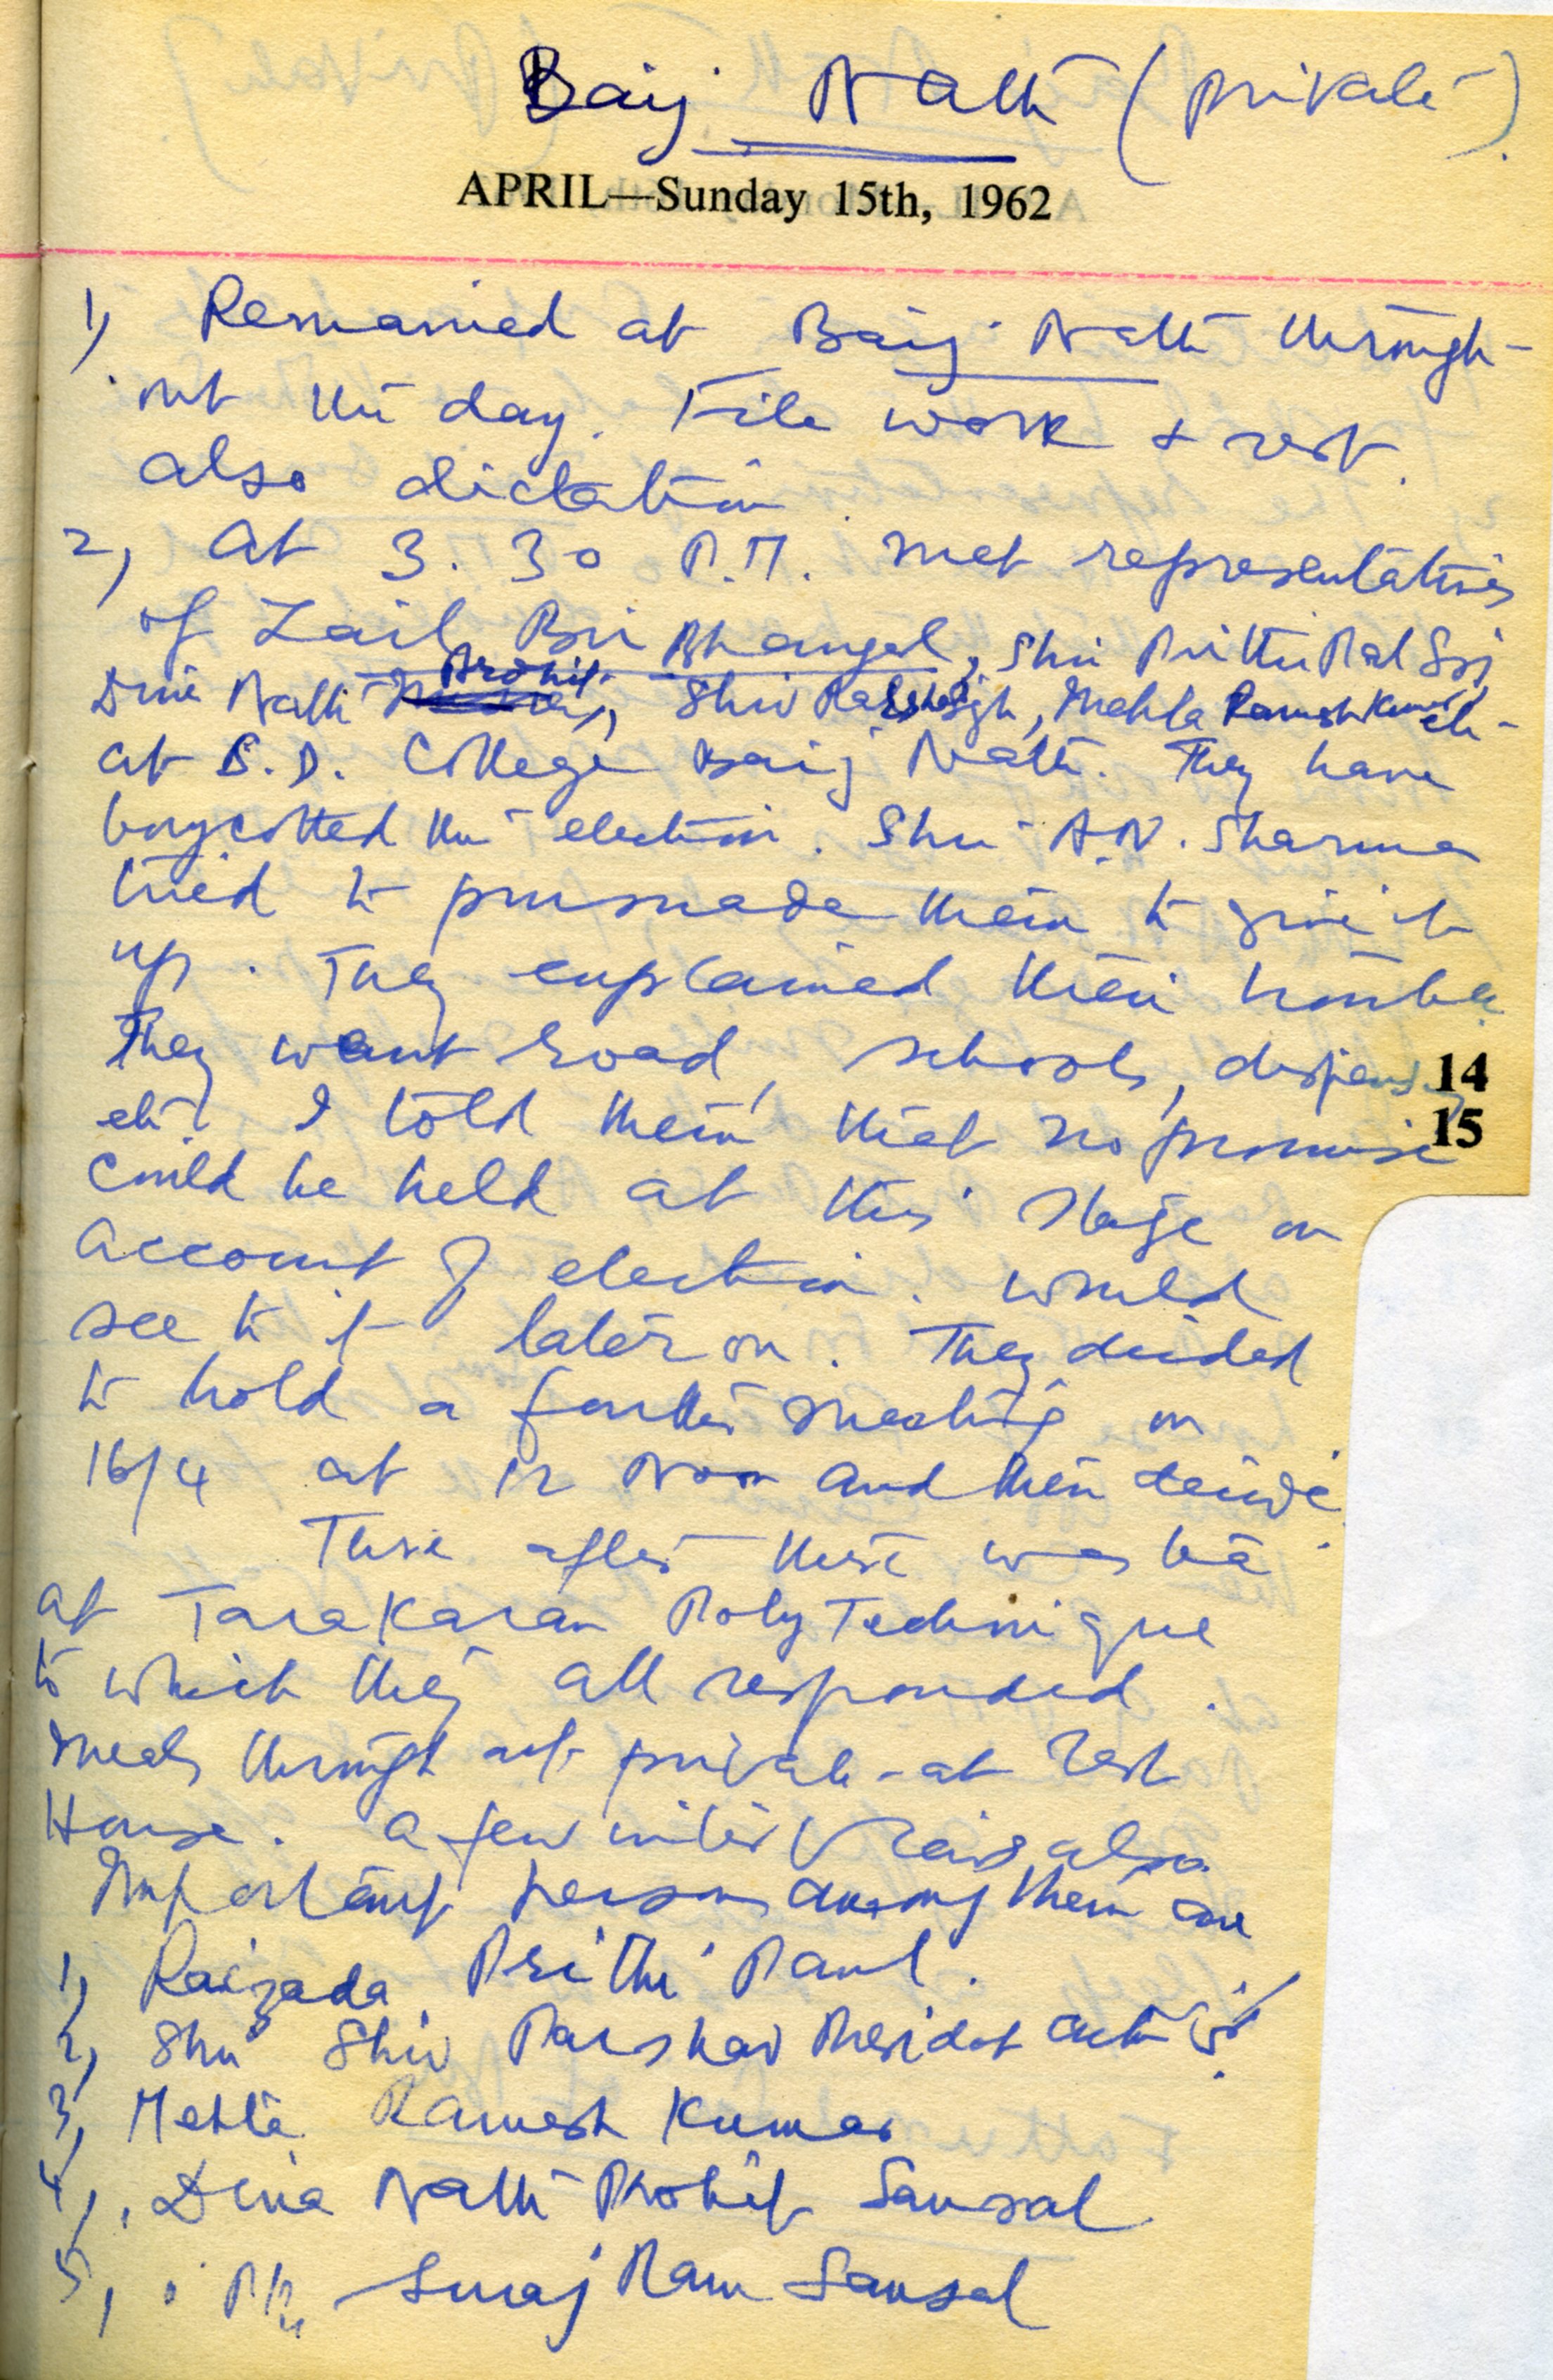 Baij Nath (Private)
APRIL—Sunday 15th, 1962
1, Remained at Baij Nath through-
out the day. File work & rest.
also dictation.
2, At 3.30 P.M. met representatives
of Zail Bir Bhangal, Shri Prithi Pal Sgj
Dina Nath Prohit, Shiv Sgh, Mehta Ramesh Kumar etc-
at S.D. College Baij Nath. They have
boycotted the election. Shri A.N. Sharma
tried to pursuade them to give it
up. They explained their trouble
They want road, schools, dispensy
14
etc. I told them that no promise
15
could be held at this stage on
account of election. would
see to it later on. They decided
to hold a further meeting on
16/4 at 12 Noon and then decide.
There after there was tea
at TaraKaran PolyTechnique
to which they all responded.
meals through out private-at rest
House. a few interviews also
Important persons among them are
1, Raizada Prithi Paul.
2, Shri Shiv Parshad Presidet
3, Mehta Ramesh Kumar
4, " Dina Nath Prohit Sansal
5, " Suraj Ram Sansal